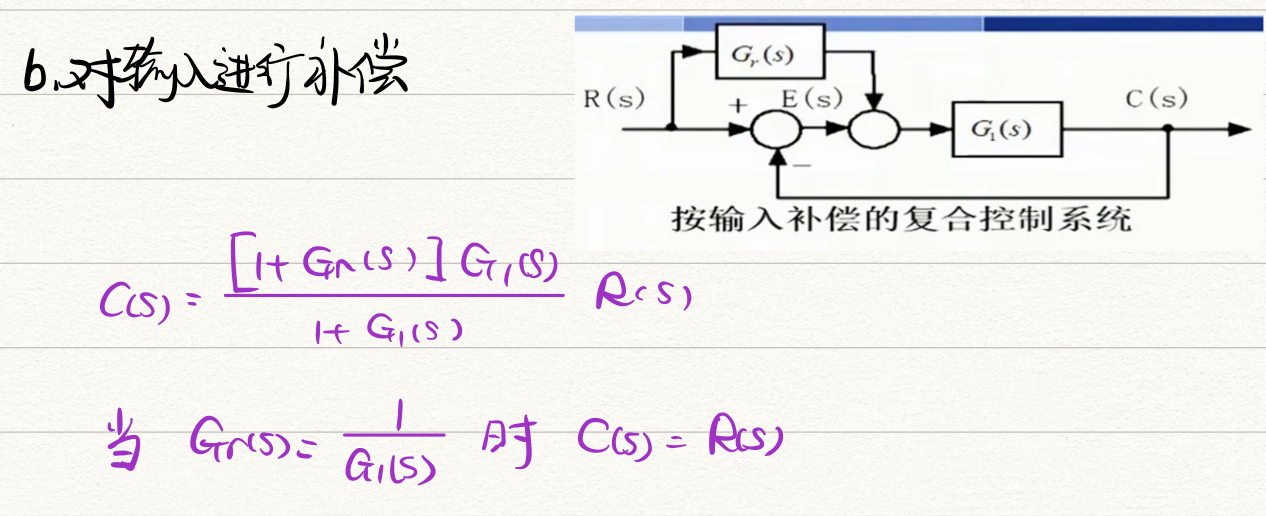 b.对输入进行补偿
G_r(s)
R(s)
+
E(s)
G_1(s)
C(s)
−
按输入补偿的复合控制系统
C(s) = \frac{[1+G_r(s)]G_1(s)}{1+G_1(s)} R(s)
当 G_r(s) = \frac{1}{G_1(s)} 时 C(s) = R(s)